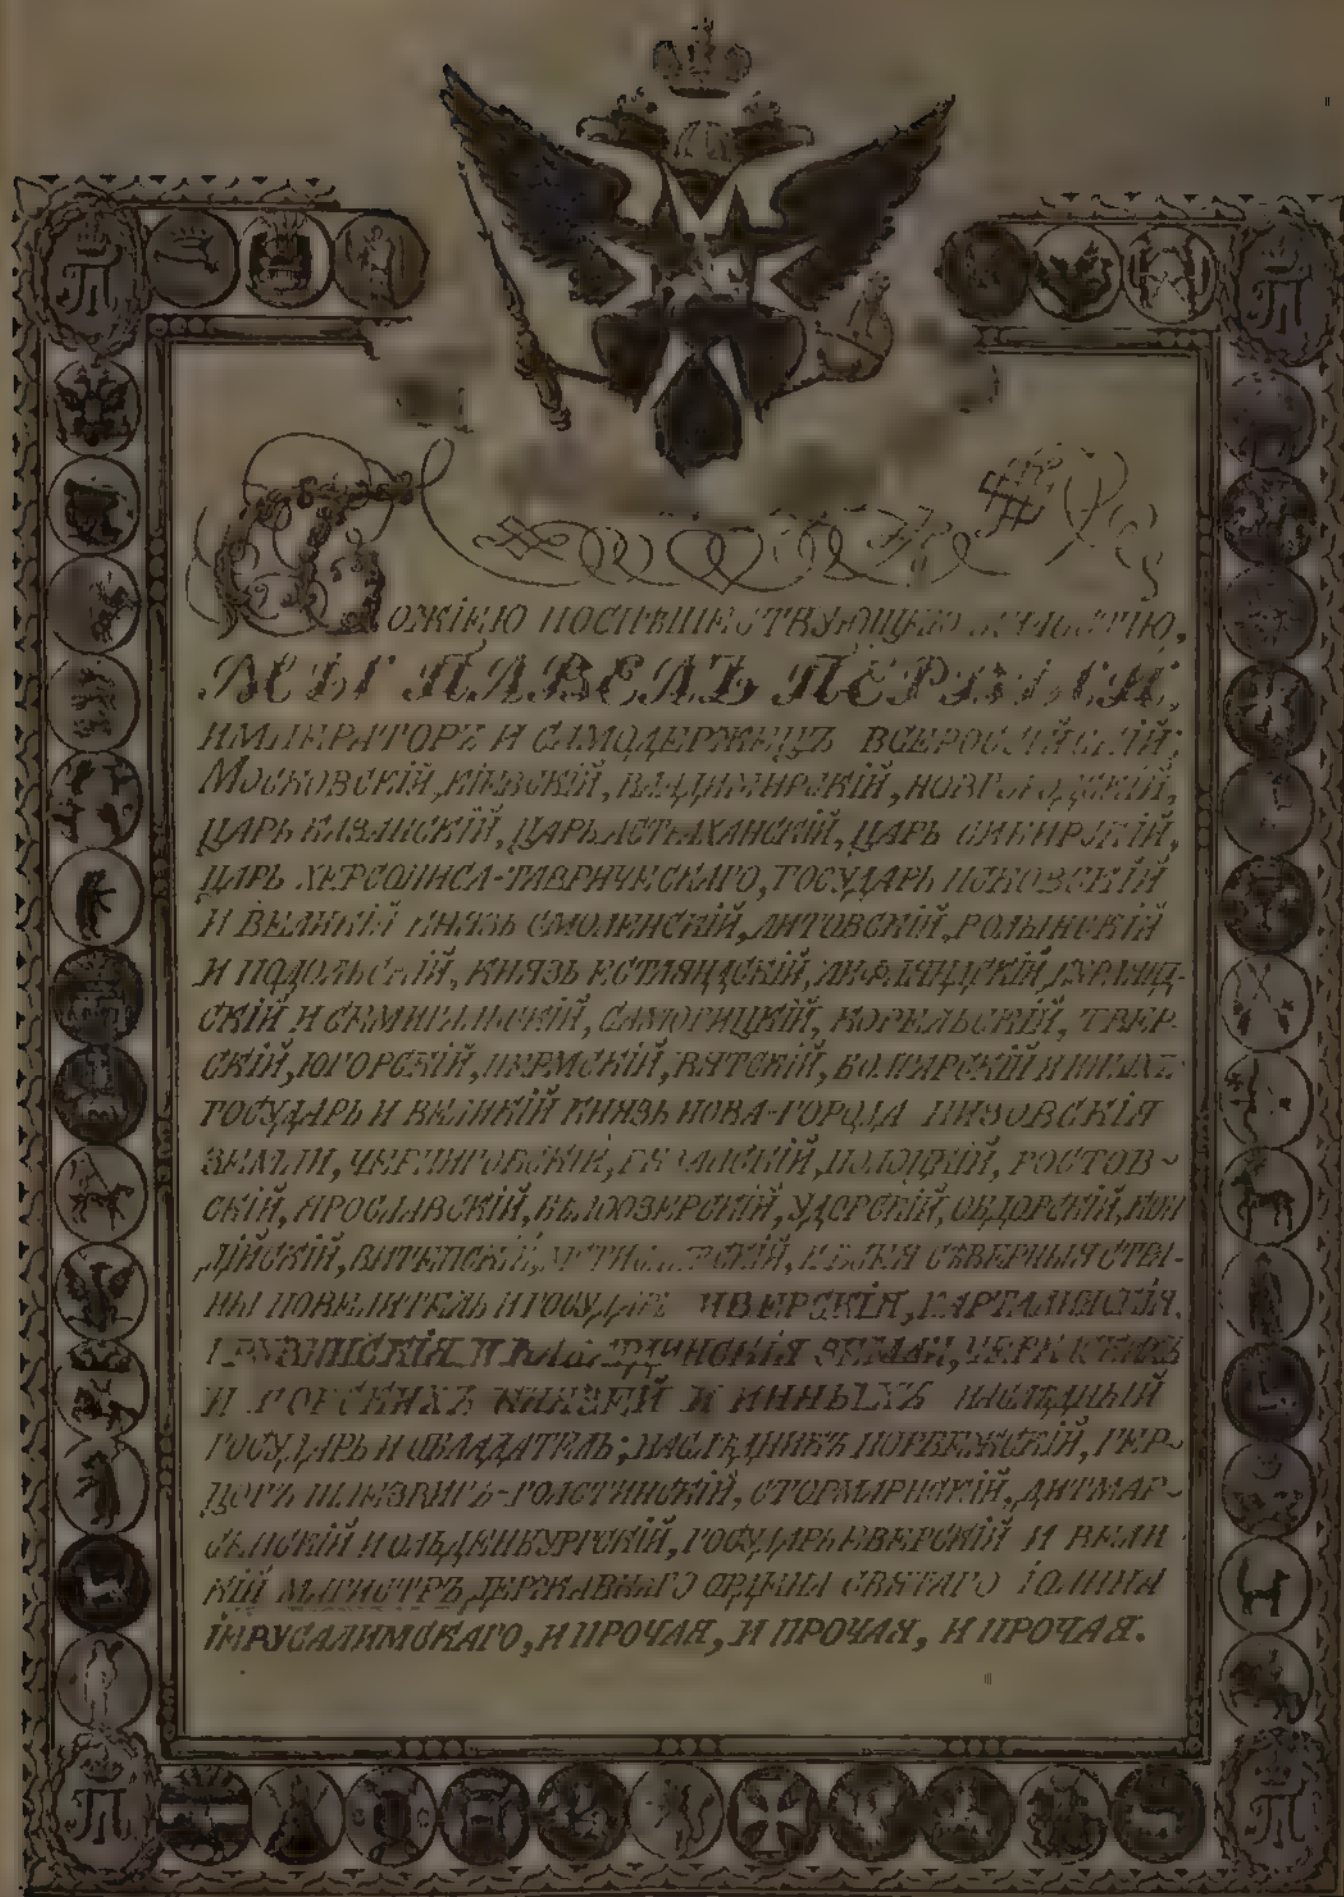 Божіею поспѣшествующею милостію,
МЫ ПАВЕЛЪ ПЕРВЫЙ,
Императоръ и Самодержецъ Всероссійскій;
Московскій, Кіевскій, Владимирскій, Новгородскій,
Царь Казанскій, Царь Астраханскій, Царь Сибирскій,
Царь Херсониса-Таврическаго, Государь Псковскій
и Великій Князь Смоленскій, Литовскій, Волынскій
и Подольскій, Князь Естляндскій, Лифляндскій, Курлянд-
скій и Семигальскій, Самогицкій, Корельскій, Твер-
скій, Югорскій, Пермскій, Вятскій, Болгарскій и иныхъ
Государь и Великій Князь Нова-города Низовскія
земли, Черниговскій, Рязанскій, Полоцкій, Ростов-
скій, Ярославскій, Бѣлоозерскій, Удорскій, Обдорскій, Кон
дійскій, Витепскій, Мстиславскій, и всея Сѣверныя стра-
ны Повелитель и Государь Иверскія, Карталинскія,
Грузинскія и Кабардинскія земли, Черкаскихъ
и Горскихъ Князей и инныхъ наслѣдный
Государь и Обладатель; Наслѣдникъ Норвежскій, Гер-
цогъ Шлезвигъ-Голстинскій, Стормарнскій, Дитмар-
сенскій и Ольденбургскій, Государь Еверскій и Вели
кій Магистръ Державнаго Ордена Святаго Іоанна
Іерусалимскаго, и прочая, и прочая, и прочая.